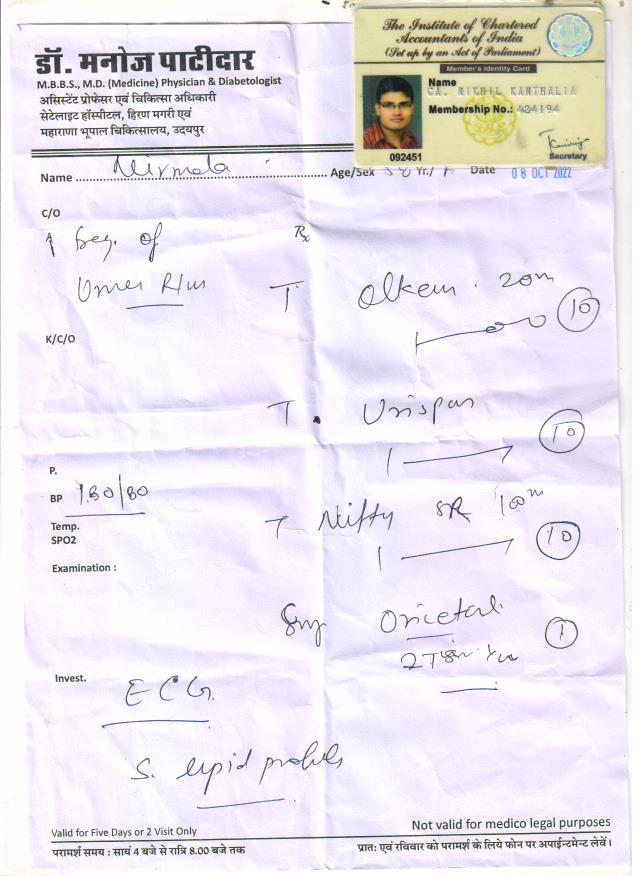 डॉ. मनोज पाटीदार
M.B.B.S., M.D. (Medicine) Physician & Diabetologist
असिस्टेंट प्रोफेसर एवं चिकित्सा अधिकारी
सेटेलाइट हॉस्पीटल, हिरण मगरी एवं
महाराणा भूपाल चिकित्सालय, उदयपुर
The Institute of Chartered
Accountants of India
(Set up by an Act of Parliament)
Member's Identity Card
Name
CA. NIKHIL KANTHALIA
Membership No.: 424194
092451
Secretary
Name Nirmala Age/Sex Yr./ F. Date 08 OCT 2022
C/O
Rx
of
T 20m
10
K/C/O
T. Urispas
10
P.
BP /80
Temp.
SPO2
T Nifty SR 100m
10
Examination :
1
Invest.
ECG.
S. lipid
Valid for Five Days or 2 Visit Only
Not valid for medico legal purposes
परामर्श समय : सायं 4 बजे से रात्रि 8.00 बजे तक
प्रातः एवं रविवार को परामर्श के लिये फोन पर अपाईन्टमेन्ट लेवें।